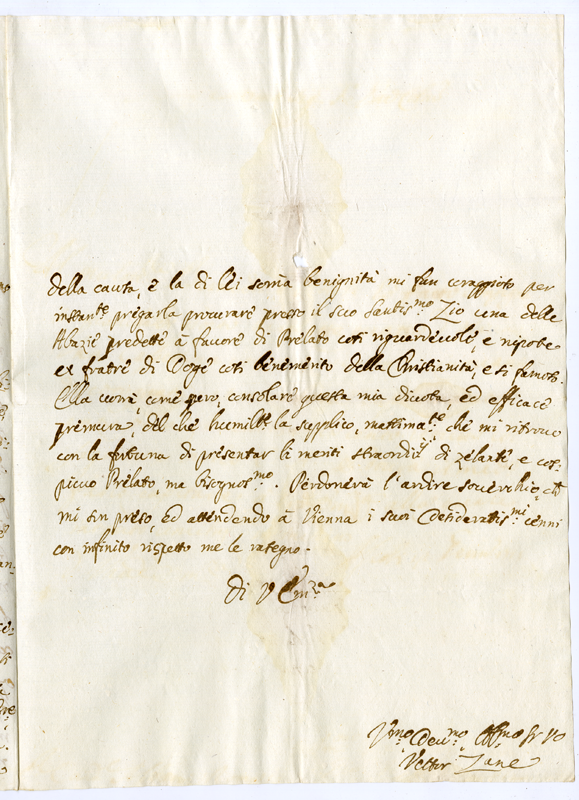 della causa, e la di lei somma benignità mi fan coraggioso per
instantᵉ pregarla procurare presso il suo Santisᵐᵒ Zio una delle
Abazie predette à favore di Prelato così riguardevole, e nipote
ex fratre di Doge così benemerito della Christianità, e sì famoso.
Ella vorrà, come spero, consolare questa mia divota, ed efficace
premura, del che humilᵗᵉ la supplico, massimaᵗᵉ che mi ritrovo
con la fortuna di presentar li meriti straordⁱʲ di zelante, e cos-
picuo Prelato, ma bisognosᵐᵒ. Perdonerà l'ardire soverchio, ch'
mi son preso, ed attendendo à Vienna i suoi desideratisᵐⁱ cenni
con infinito rispetto me le rasegno.
di V Emᶻᵃ
Vᵐᵒ Devᵐᵒ Obᵐᵒ
Vettor Zane